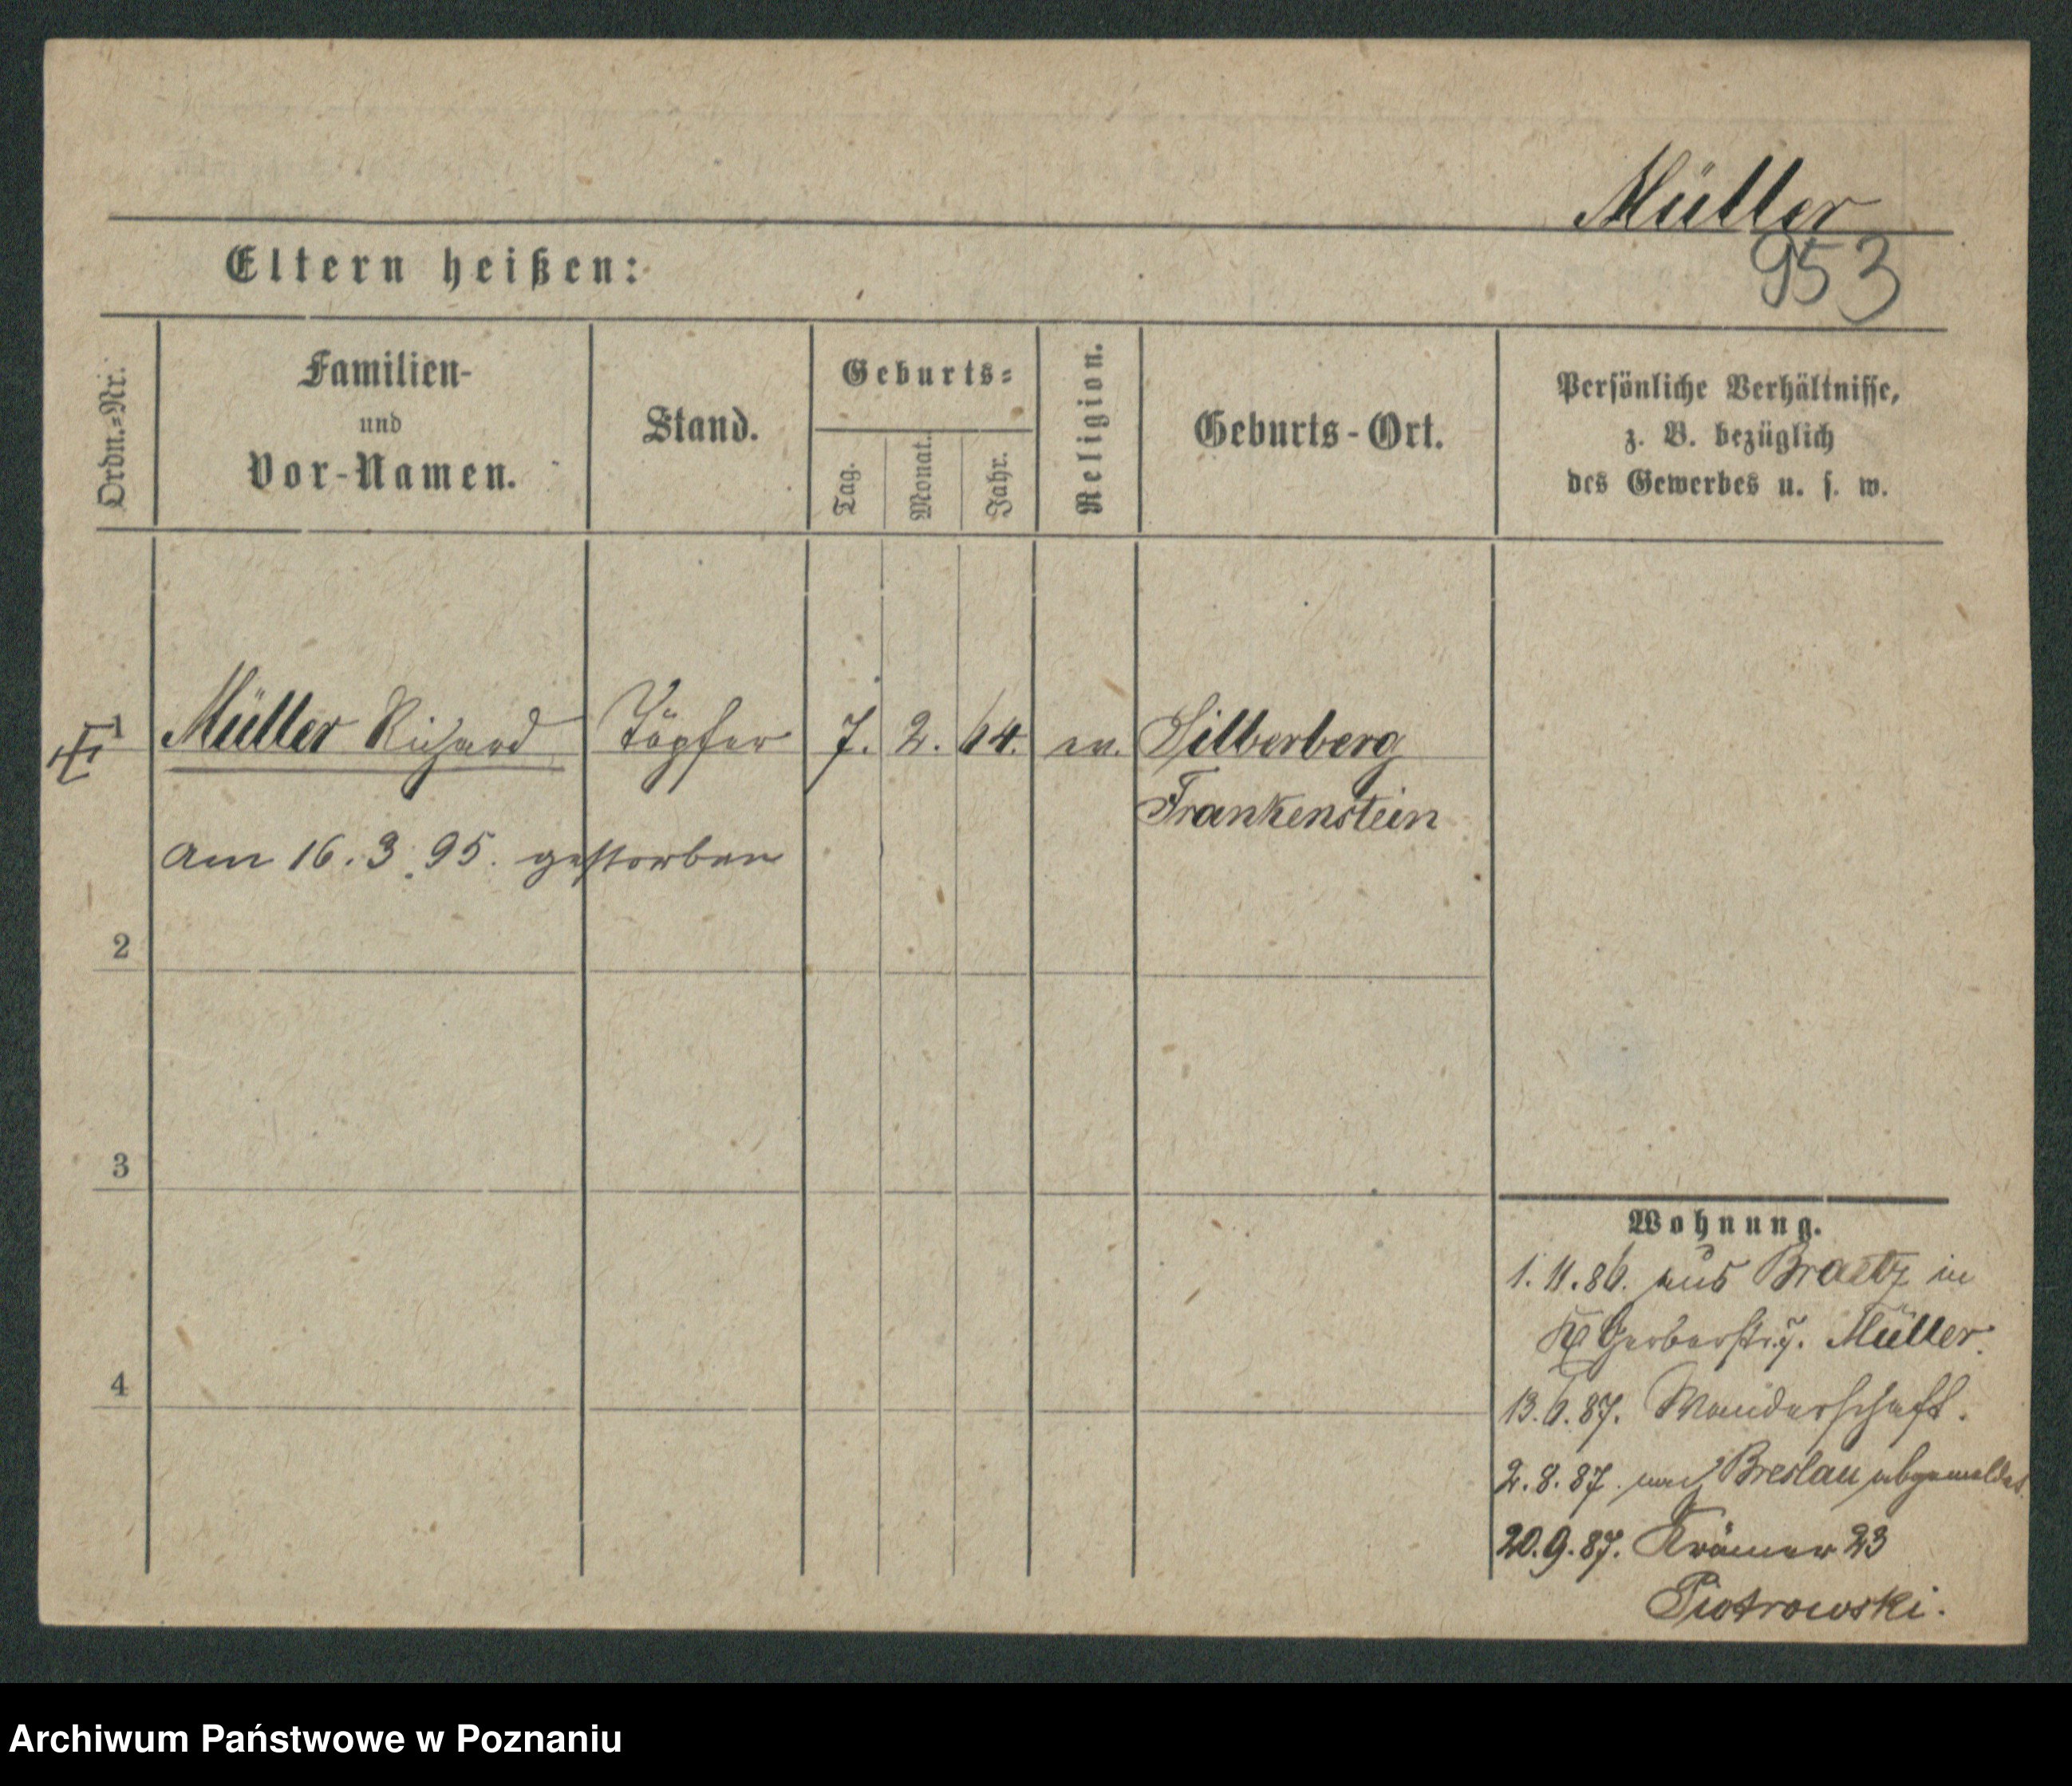 Müller
953
Eltern heißen:
Ordn.-Nr.
Familien-
und
Vor-Namen.
Stand.
Geburts-
Tag.
Monat.
Jahr.
Religion.
Geburts-Ort.
Persönliche Verhältnisse,
z. B. bezüglich
des Gewerbes u. s. w.
1 Müller Richard Töpfer 7. 2. 64. ev. Silberberg
Frankenstein
am 16. 3. 95. gestorben
2
3
4
Wohnung.
1. 11. 86. aus Braetz in
Kl Gerberstr. 7. Müller.
13. 6. 87. Wanderschaft.
2. 8. 87. nach Breslau abgemeldet.
20. 9. 87. Krämer 23
Piotrowski.
Archiwum Państwowe w Poznaniu